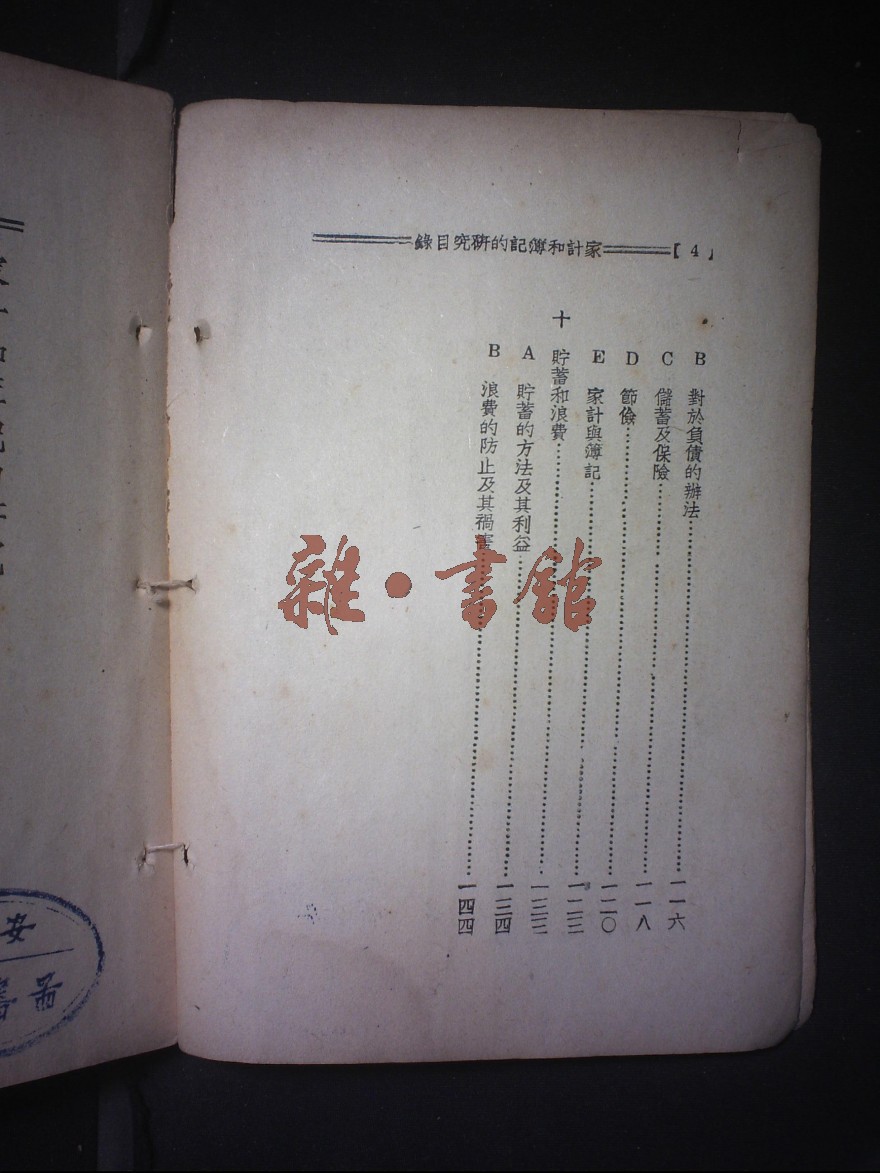 【4】家計和簿記的研究目錄
B 對於負債的辦法 一一六
C 儲蓄及保險 一一八
D 節儉 一二〇
E 家計與簿記 一二三
十 貯蓄和浪費 一三三
A 貯蓄的方法及其利益 一三四
B 浪費的防止及其禍害 一四四
雜•書館
安